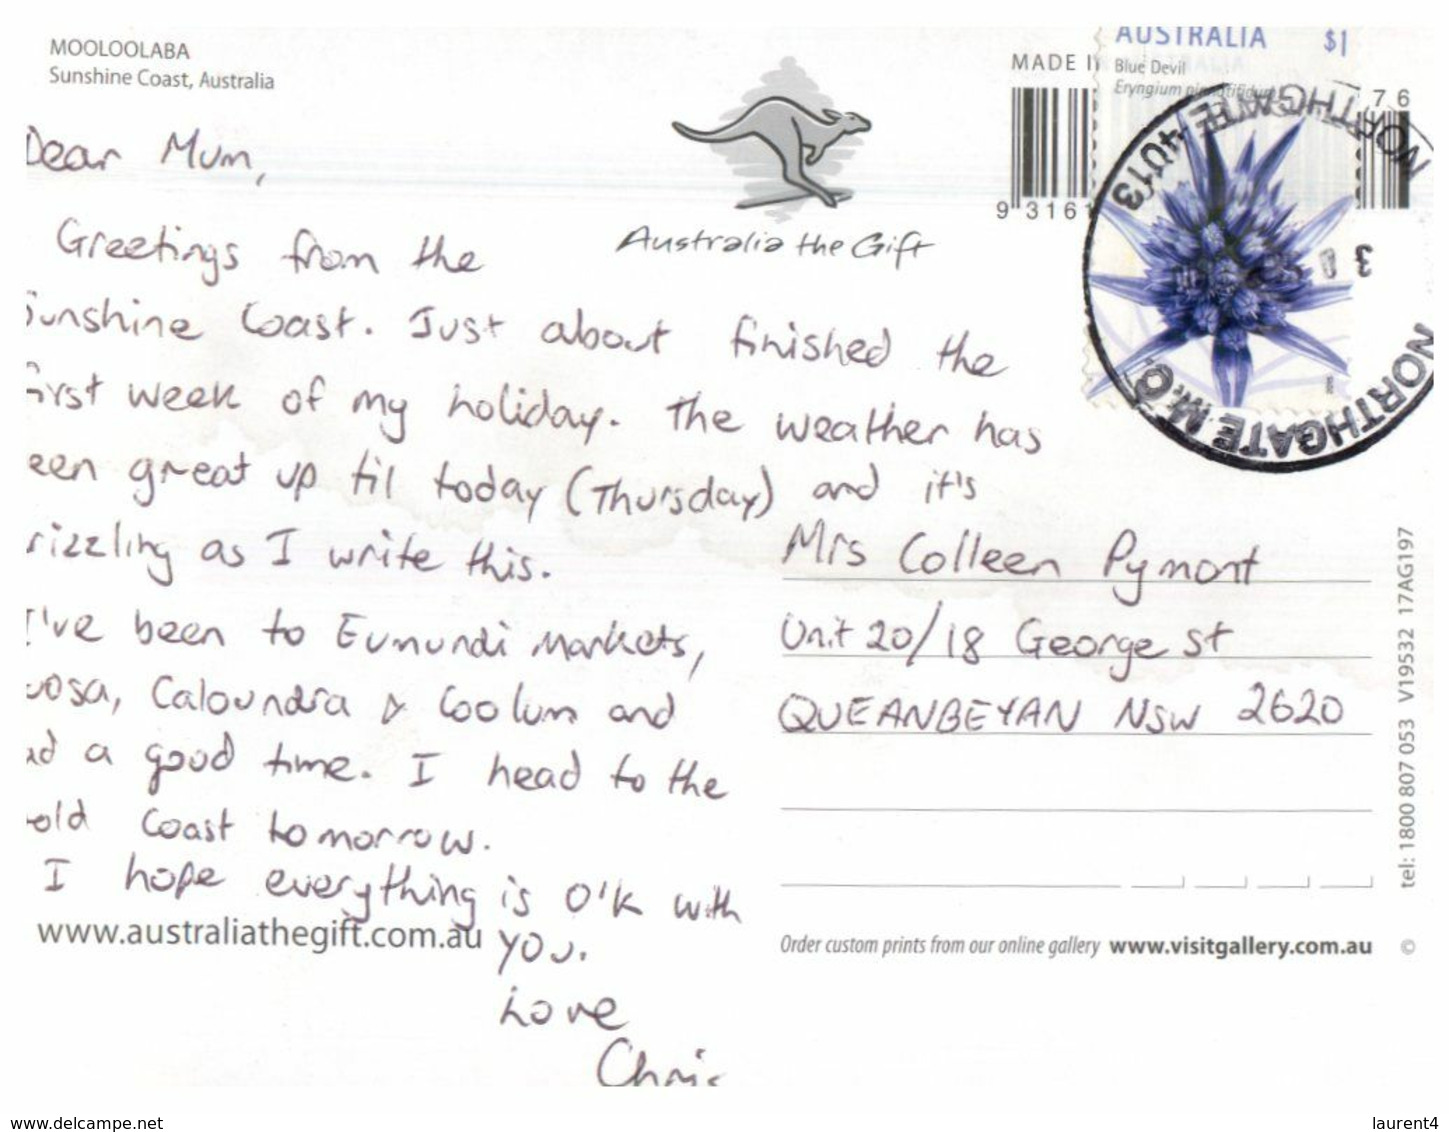 MOOLOOLABA
Sunshine Coast, Australia
MADE I
AUSTRALIA $1
Blue Devil
Eryngium pinnatifidum
76
9 3161
NORTHGATE 4013
3
NORTHGATE M.C. Q
Australia the Gift
Dear Mum,
Greetings from the
Sunshine Coast. Just about finished the
first week of my holiday. The weather has
een great up til today (Thursday) and it's
rizzling as I write this.
I've been to Eumundi Markets,
oosa, Caloundra & Coolum and
ad a good time. I head to the
old Coast tomorrow.
I hope everything is O'K with
you.
Love
Chris
Mrs Colleen Pymont
Unit 20/18 George St
QUEANBEYAN NSW 2620
tel: 1800 807 053 V19532 17AG197
www.australiathegift.com.au
Order custom prints from our online gallery www.visitgallery.com.au ©
www.delcampe.net
laurent4